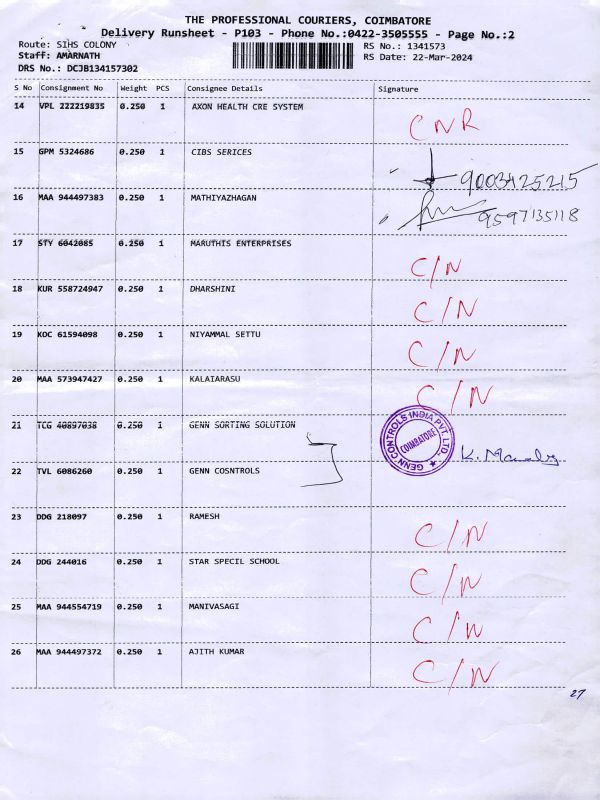 THE PROFESSIONAL COURIERS, COIMBATORE
Delivery Runsheet - P103 - Phone No.:0422-3505555 - Page No.:2
Route: SIHS COLONY RS No.: 1341573
Staff: AMARNATH RS Date: 22-Mar-2024
DRS No.: DCJB134157302
S No Consignment No Weight PCS Consignee Details Signature
14 VPL 222219835 0.250 1 AXON HEALTH CRE SYSTEM CNR
15 GPM 5324686 0.250 1 CIBS SERICES 9003425215
16 MAA 944497383 0.250 1 MATHIYAZHAGAN 9597135118
17 STY 6042085 0.250 1 MARUTHIS ENTERPRISES C/N
18 KUR 558724947 0.250 1 DHARSHINI C/N
19 KOC 61594098 0.250 1 NIYAMMAL SETTU C/N
20 MAA 573947427 0.250 1 KALAIARASU C/N
21 TCG 40897038 0.250 1 GENN SORTING SOLUTION
GENN CONTROLS INDIA PVT. LTD. COIMBATORE
22 TVL 6086260 0.250 1 GENN COSNTROLS
23 DDG 218097 0.250 1 RAMESH C/N
24 DDG 244016 0.250 1 STAR SPECIL SCHOOL C/N
25 MAA 944554719 0.250 1 MANIVASAGI C/N
26 MAA 944497372 0.250 1 AJITH KUMAR C/N
27